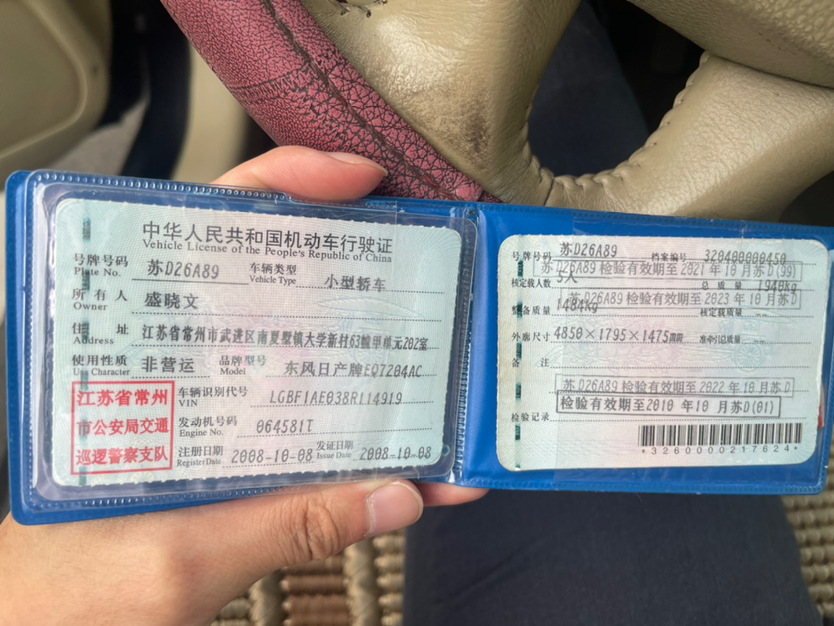 中华人民共和国机动车行驶证
Vehicle License of the People's Republic of China
号牌号码 苏D26A89 车辆类型 小型轿车
Plate No. Vehicle Type
所有人 盛晓文
Owner
住址 江苏省常州市武进区南夏墅镇大学新村63幢甲单元202室
Address
使用性质 非营运 品牌型号 东风日产牌EQ7204AC
Use Character Model
江苏省常州
市公安局交通
巡逻警察支队
车辆识别代号 LGBF1AE038R114919
VIN
发动机号码 064581T
Engine No.
注册日期 2008-10-08 发证日期 2008-10-08
Register Date Issue Date
号牌号码 苏D26A89 档案编号 320400000450
苏D26A89 检验有效期至 2021 年 10 月 苏D(99)
核定载人数 5人 总质量 1940kg
苏D26A89 检验有效期至 2023 年 10 月 苏D
整备质量 1484kg 核定载质量 --
外廓尺寸 4850×1795×1475 准牵引总质量 --
备注
苏D26A89 检验有效期至 2022 年 10 月 苏D
检验有效期至2010 年10 月苏D(01)
检验记录
*3260000217624*